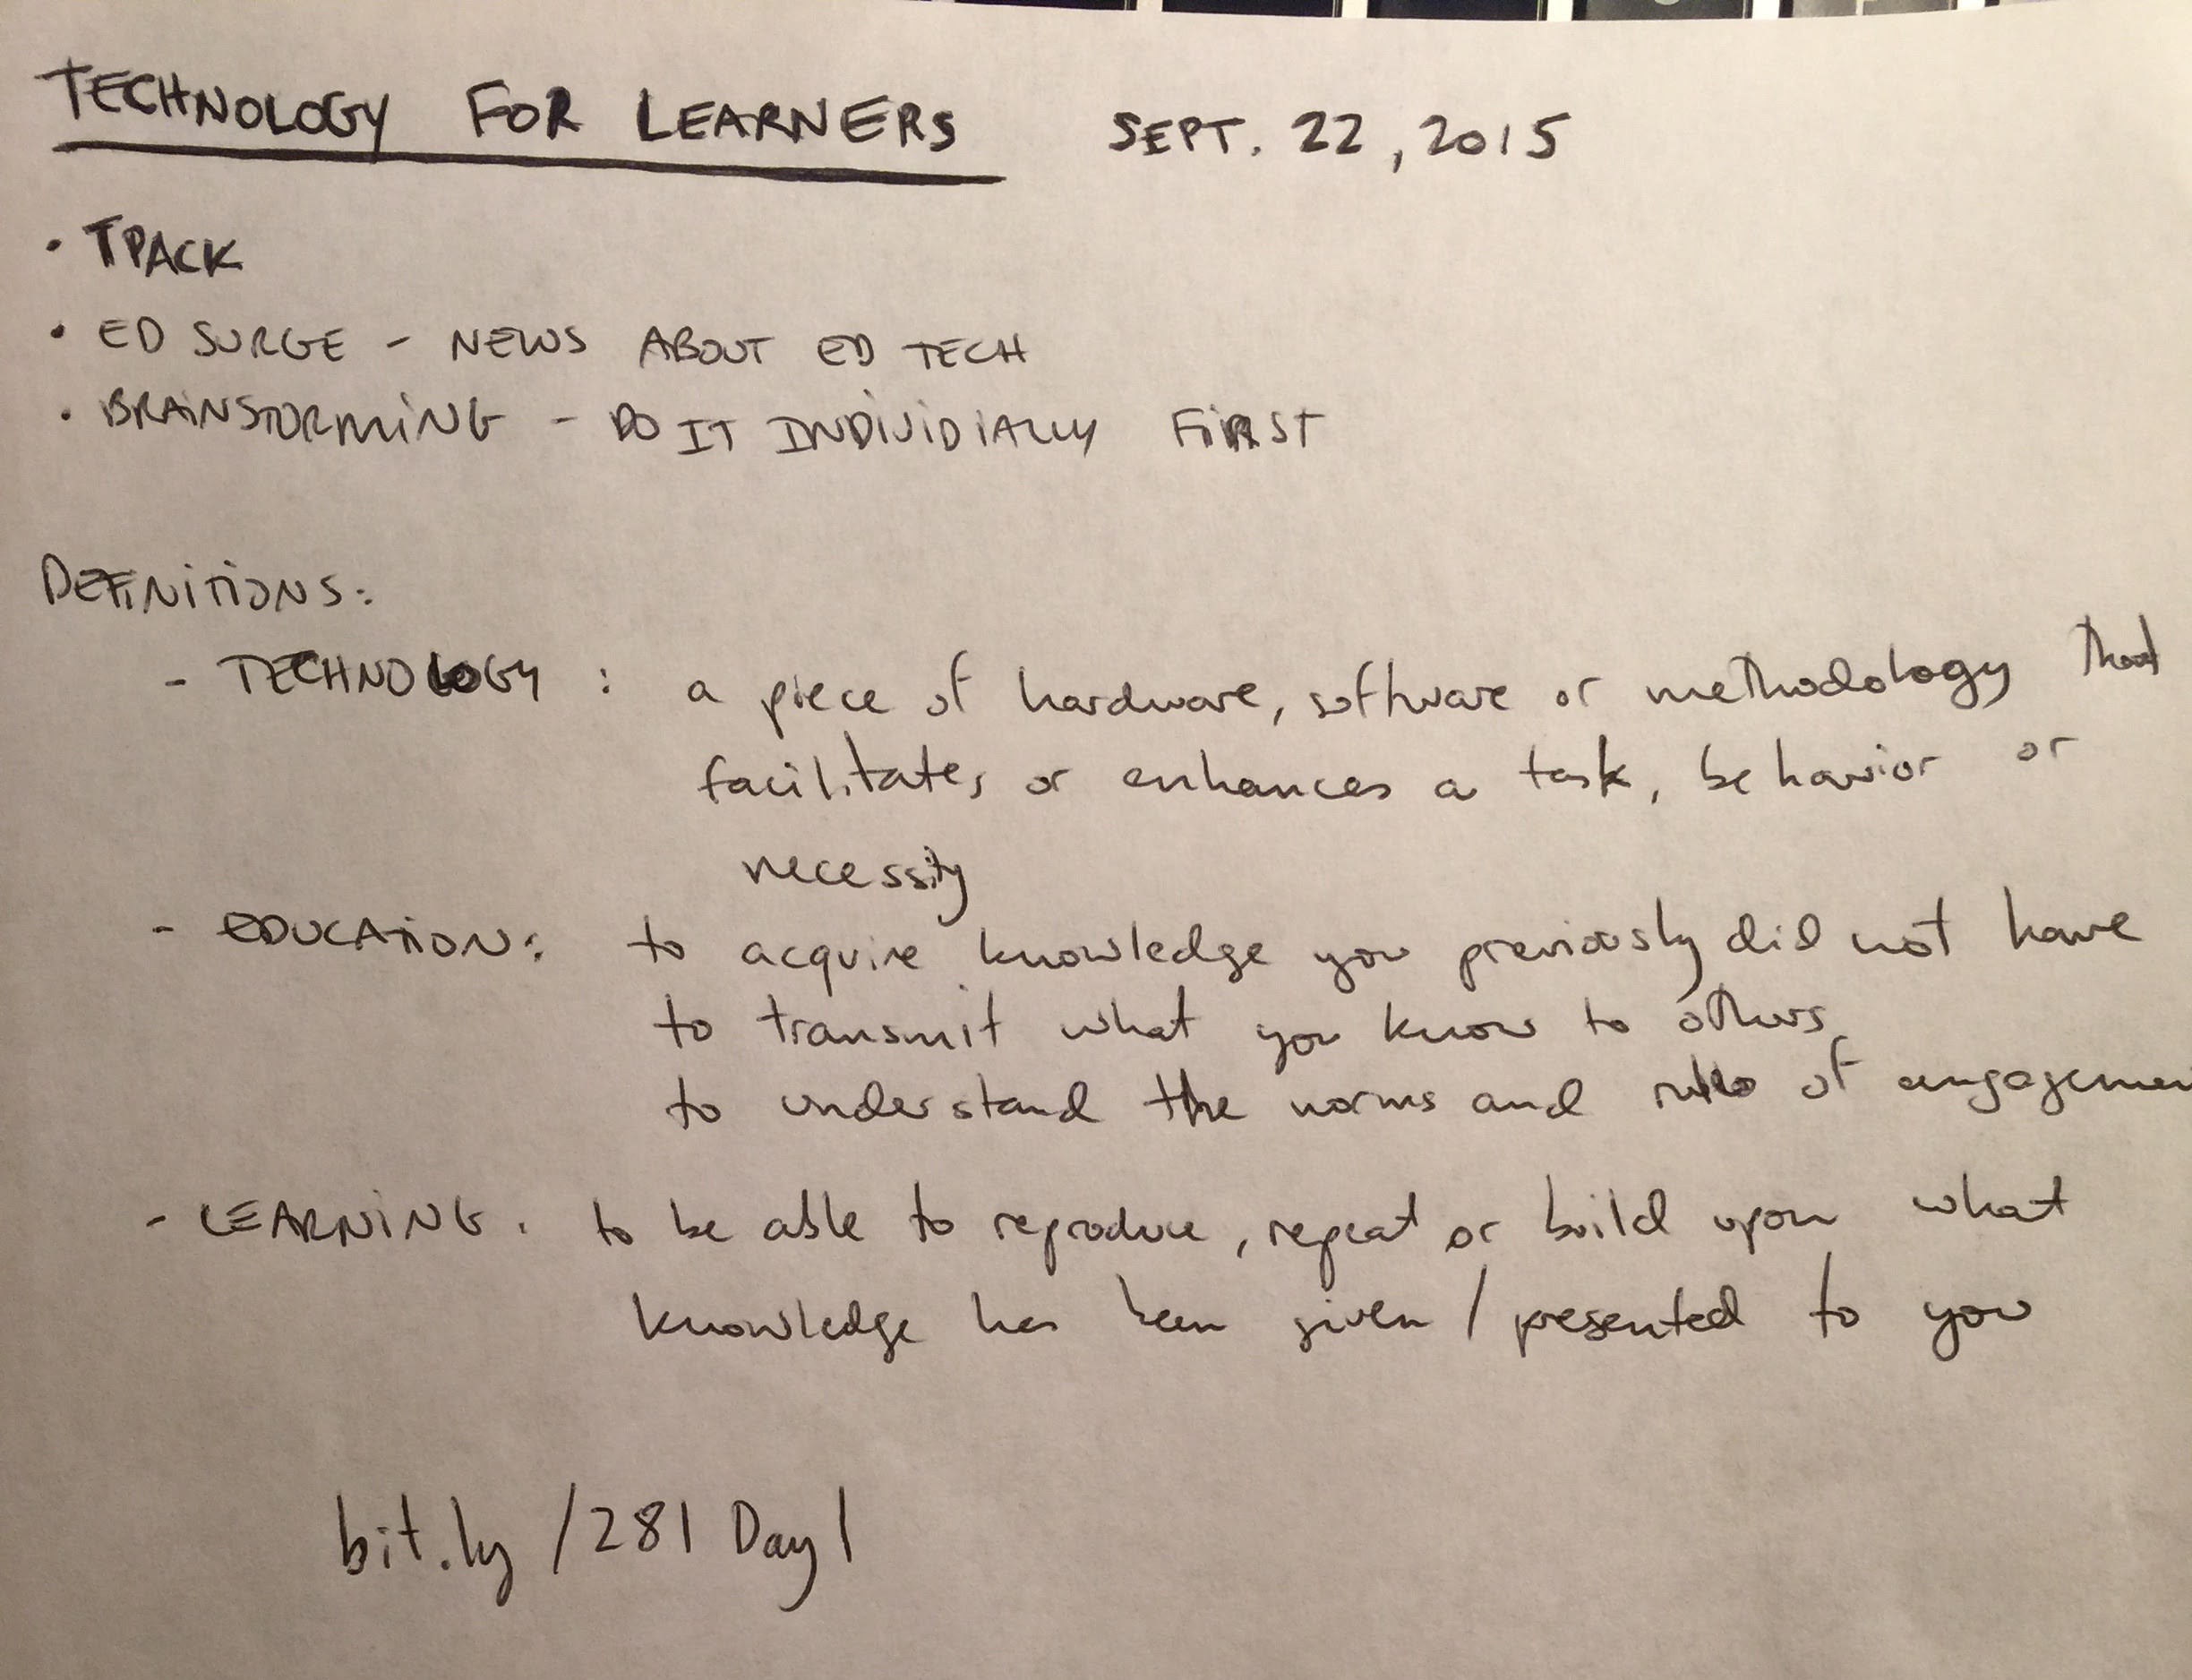 TECHNOLOGY FOR LEARNERS SEPT. 22, 2015
• TPACK
• ED SURGE - NEWS ABOUT ED TECH
• BRAINSTORMING - DO IT INDIVIDIALLY FIRST
DEFINITIONS:
- TECHNOLOGY : a piece of hardware, software or methodology that
facilitates or enhances a task, behavior or
necessity
- EDUCATION: to acquire knowledge you previously did not have
to transmit what you know to others
to understand the norms and rules of engagemen
- LEARNING. to be able to reproduce, repeat or build upon what
knowledge has been given / presented to you
bit.ly /281 Day 1